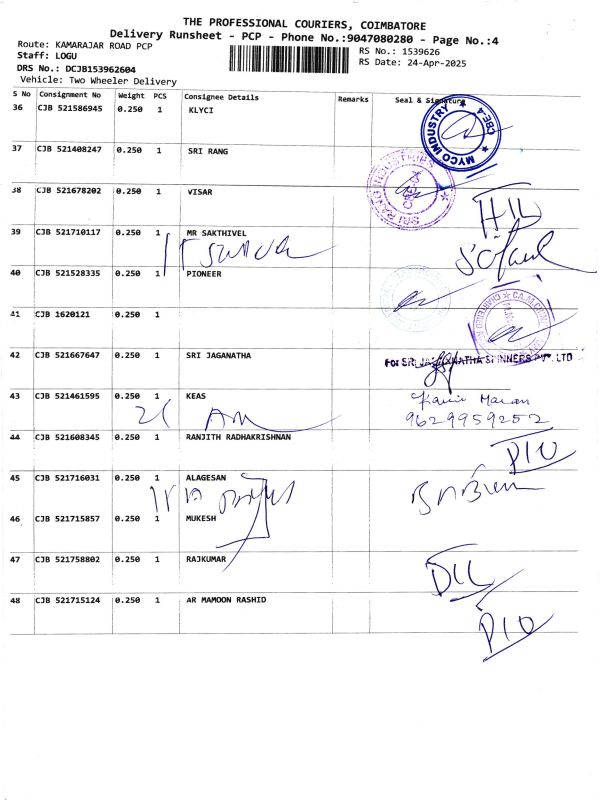 THE PROFESSIONAL COURIERS, COIMBATORE
Delivery Runsheet - PCP - Phone No.:9047080280 - Page No.:4
Route: KAMARAJAR ROAD PCP
Staff: LOGU
DRS No.: DCJB153962604
Vehicle: Two Wheeler Delivery
RS No.: 1539626
RS Date: 24-Apr-2025
S No Consignment No Weight PCS Consignee Details Remarks Seal & Signature
36 CJB 521586945 0.250 1 KLYCI
MYCO INDUSTRY ★ CBE-4 ★
37 CJB 521408247 0.250 1 SRI RANG
SRI RANG INDUSTRIES ★
38 CJB 521678202 0.250 1 VISAR
39 CJB 521710117 0.250 1 MR SAKTHIVEL
40 CJB 521528335 0.250 1 PIONEER
41 CJB 1620121 0.250 1
42 CJB 521667647 0.250 1 SRI JAGANATHA
For SRI JAGANNATHA SPINNERS PVT. LTD
43 CJB 521461595 0.250 1 KEAS
9629959252
44 CJB 521608345 0.250 1 RANJITH RADHAKRISHNAN
45 CJB 521716031 0.250 1 ALAGESAN
46 CJB 521715857 0.250 1 MUKESH
47 CJB 521758802 0.250 1 RAJKUMAR
48 CJB 521715124 0.250 1 AR MAMOON RASHID